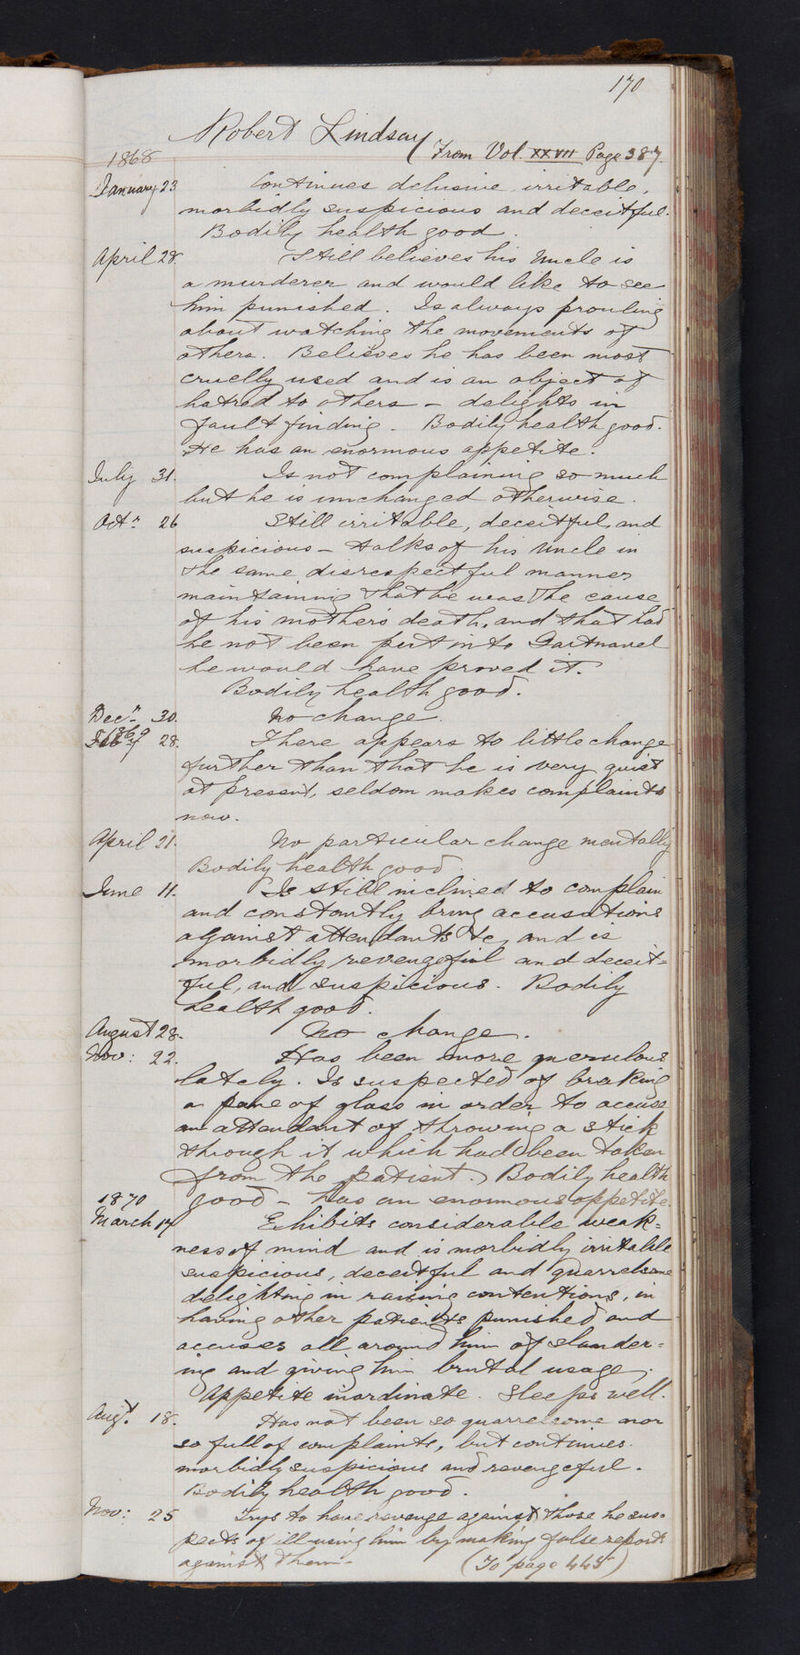 170
Robert Lindsay (From Vol. XXVII Page 387.
1868
January 23 Continues delusive, irritable,
morbidly suspicious and deceitful.
Bodily health good.
April 28. Still believes his Uncle is
a murderer and would like to see
him punished. Is always prowling
about watching the movements of
others. Believes he has been most
cruelly used and is an object of
hatred to others – delights in
fault finding. Bodily health good.
He has an enormous appetite.
July 31. Is not complaining so much
but he is unchanged otherwise.
Octr. 26 Still irritable, deceitful, and
suspicious – talks of his Uncle in
the same disrespectful manner
maintaining that he was the cause
of his mother's death, and that had
he not been put into Gartnavel
he would have proved it.
Bodily health good.
Decr. 30. No change.
1869
Feby 28. There appears to little change
further than that he is very quiet
at present, seldom makes complaints
now.
April 21. No particular change mentally
Bodily health good.
June 11. Is still inclined to complain
and constantly bring accusations
against attendants &c, and is
morbidly revengeful and deceit=
ful, and suspicious. Bodily
health good.
August 28. No change.
Nov: 22. Has been more querulous
lately. Is suspected of braking
a pane of glass in order to accuse
an attendant of throwing a stick
through it which had been taken
from the patient. Bodily health
good – has an enormous appetite.
1870
March 17 Exhibits considerable weak=
ness of mind and is morbidly irritable
suspicious, deceitful and quarrelsome
delighting in raising contentions, in
having other patients punished and
accuses all around him of slander=
ing and giving him brutal usage.
Appetite inordinate. Sleeps well.
Augt. 18. Has not been so quarrelsome nor
so full of complaints, but continues
morbidly suspicious and revengeful.
Bodily health good.
Nov: 25 Trys to have revenge against those he sus=
pects of ill-using him by making false reports
against them. (To page 445)